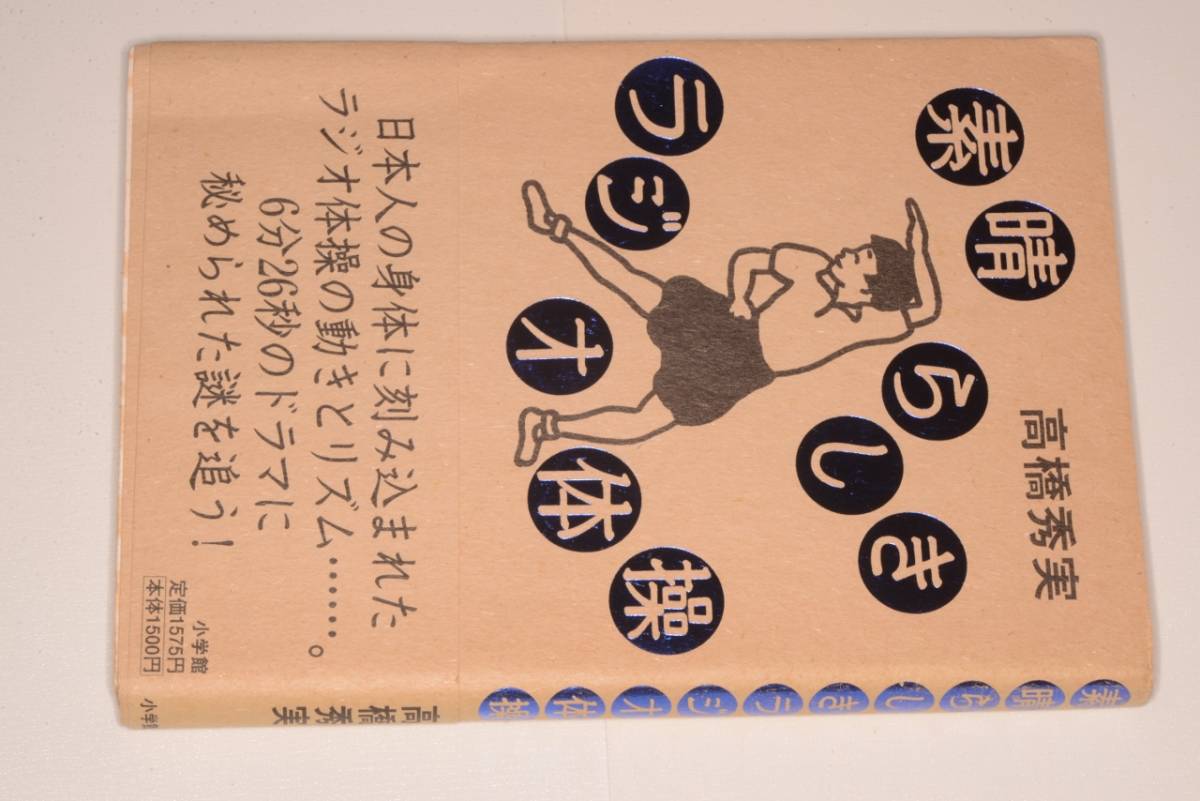 素晴らしき
ラジオ体操
高橋秀実
日本人の身体に刻み込まれた
ラジオ体操の動きとリズム……。
6分26秒のドラマに
秘められた謎を追う!
小学館
定価1575円
本体1500円
素晴らしきラジオ体操
高橋秀実
小学館